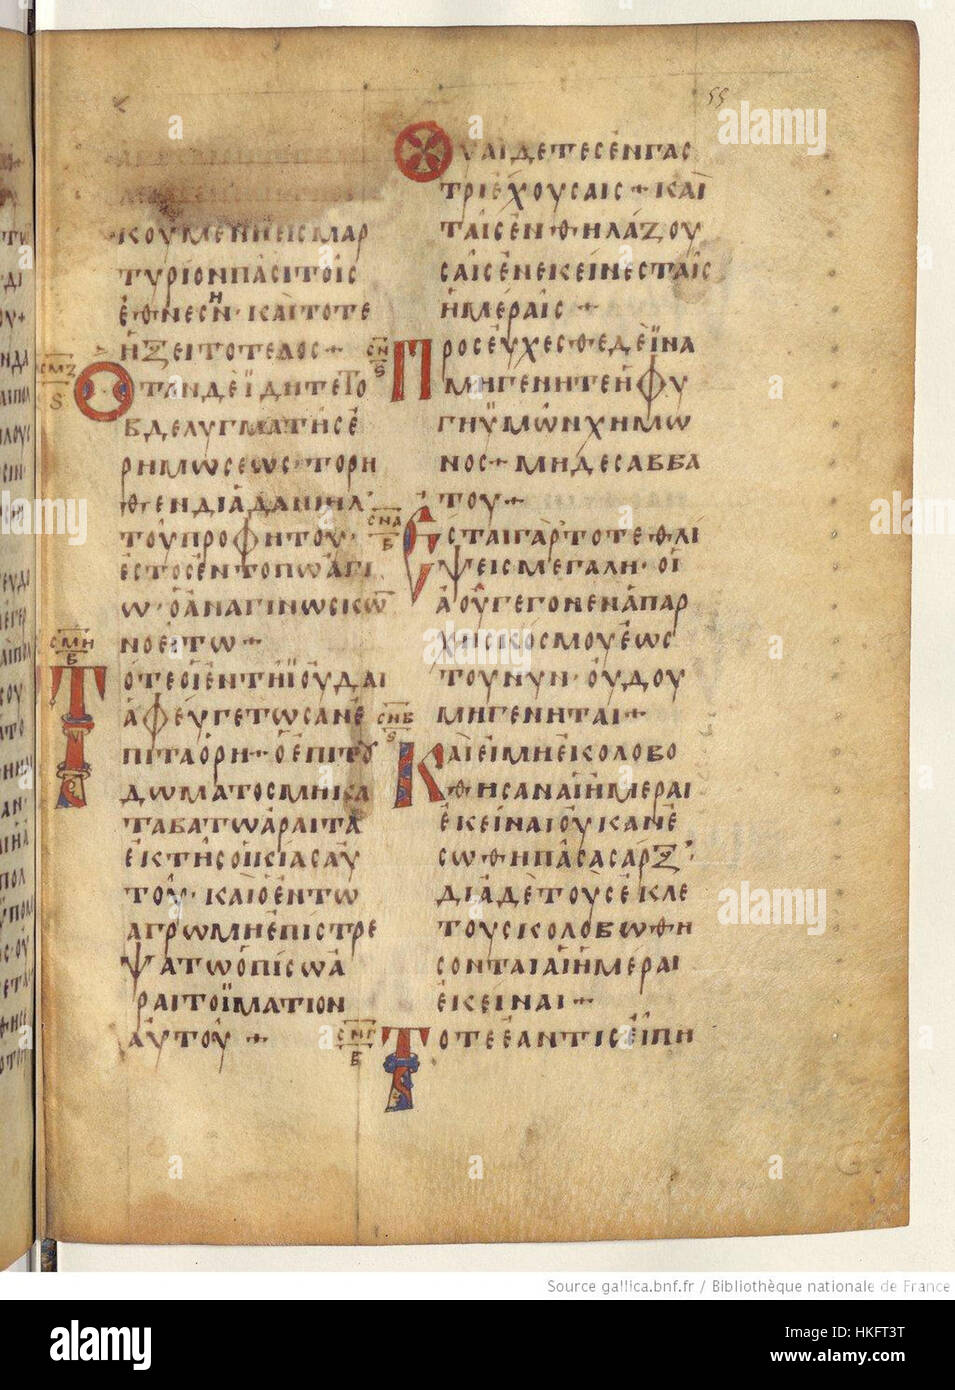 55
ΚΟΥΜΕΝΗΕΙΣΜΑΡ
ΤΥΡΙΟΝΠΑΣΙΤΟΙΣ
ΕΘΝΕΣΗΝ·ΚΑΙΤΟΤΕ
ΗΞΕΙΤΟΤΕΛΟΣ+
ΣΜΖ
ς
ΟΤΑΝΔΕΪΔΗΤΕΤΟ
ΒΔΕΛΥΓΜΑΤΗΣΕ
ΡΗΜΩΣΕΩΣ·ΤΟΡΗ
ΘΕΝΔΙΑΔΑΝΙΗΛ
ΤΟΥΠΡΟΦΗΤΟΥ·
ΕΣΤΟΣΕΝΤΟΠΩΑΓΙ
Ω·ΟΑΝΑΓΙΝΩΣΚΩ
ΝΟΕΙΤΩ+
ΣΜΗ
Β
ΤΟΤΕΟΙΕΝΤΗΪΟΥΔΑΙ
ΑΦΕΥΓΕΤΩΣΑΝΕ
ΠΙΤΑΟΡΗ+ΟΕΠΙΤΟΥ
ΔΩΜΑΤΟΣΜΗΚΑ
ΤΑΒΑΤΩΑΡΑΙΤΑ
ΕΚΤΗΣΟΙΚΙΑΣΑΥ
ΤΟΥ·ΚΑΙΟΕΝΤΩ
ΑΓΡΩΜΗΕΠΙΣΤΡΕ
ΨΑΤΩΟΠΙΣΩΑ
ΡΑΙΤΟΪΜΑΤΙΟΝ
ΑΥΤΟΥ+
ΟΥΑΙΔΕΤΕΣΕΝΓΑΣ
ΤΡΙΕΧΟΥΣΑΙΣ+ΚΑΙ
ΤΑΙΣΕΝΘΗΛΑΖΟΥ
ΣΑΙΣΕΝΕΚΕΙΝΕΣΤΑΙΣ
ΗΜΕΡΑΙΣ+
ΣΝ
ς
ΠΡΟΣΕΥΧΕΣΘΕΔΕΪΝΑ
ΜΗΓΕΝΗΤΕΗΦΥ
ΓΗΫΜΩΝΧΗΜΩ
ΝΟΣ+ΜΗΔΕΣΑΒΒΑ
ΤΟΥ+
ΣΝΑ
Β
ΕΣΤΑΙΓΑΡΤΟΤΕΘΛΙ
ΨΕΙΣΜΕΓΑΛΗ·ΟΙ
ΑΟΥΓΕΓΟΝΕΝΑΠΑΡ
ΧΗΣΚΟΣΜΟΥΕΩΣ
ΤΟΥΝΥΝ·ΟΥΔΟΥ
ΜΗΓΕΝΗΤΑΙ+
ΣΝΒ
ς
ΚΑΙΕΙΜΗΕΚΟΛΟΒΟ
ΘΗΣΑΝΑΙΗΜΕΡΑΙ
ΕΚΕΙΝΑΙΟΥΚΑΝΕ
ΣΩΘΗΠΑΣΑΣΑΡΞ
ΔΙΑΔΕΤΟΥΣΕΚΛΕ
ΤΟΥΣΚΟΛΟΒΩΘΗ
ΣΟΝΤΑΙΑΙΗΜΕΡΑΙ
ΕΚΕΙΝΑΙ+
ΣΝΓ
Β
ΤΟΤΕΕΑΝΤΙΣΕΙΠΗ
Source gallica.bnf.fr / Bibliothèque nationale de France
alamy
Image ID: HKFT3T
www.alamy.com